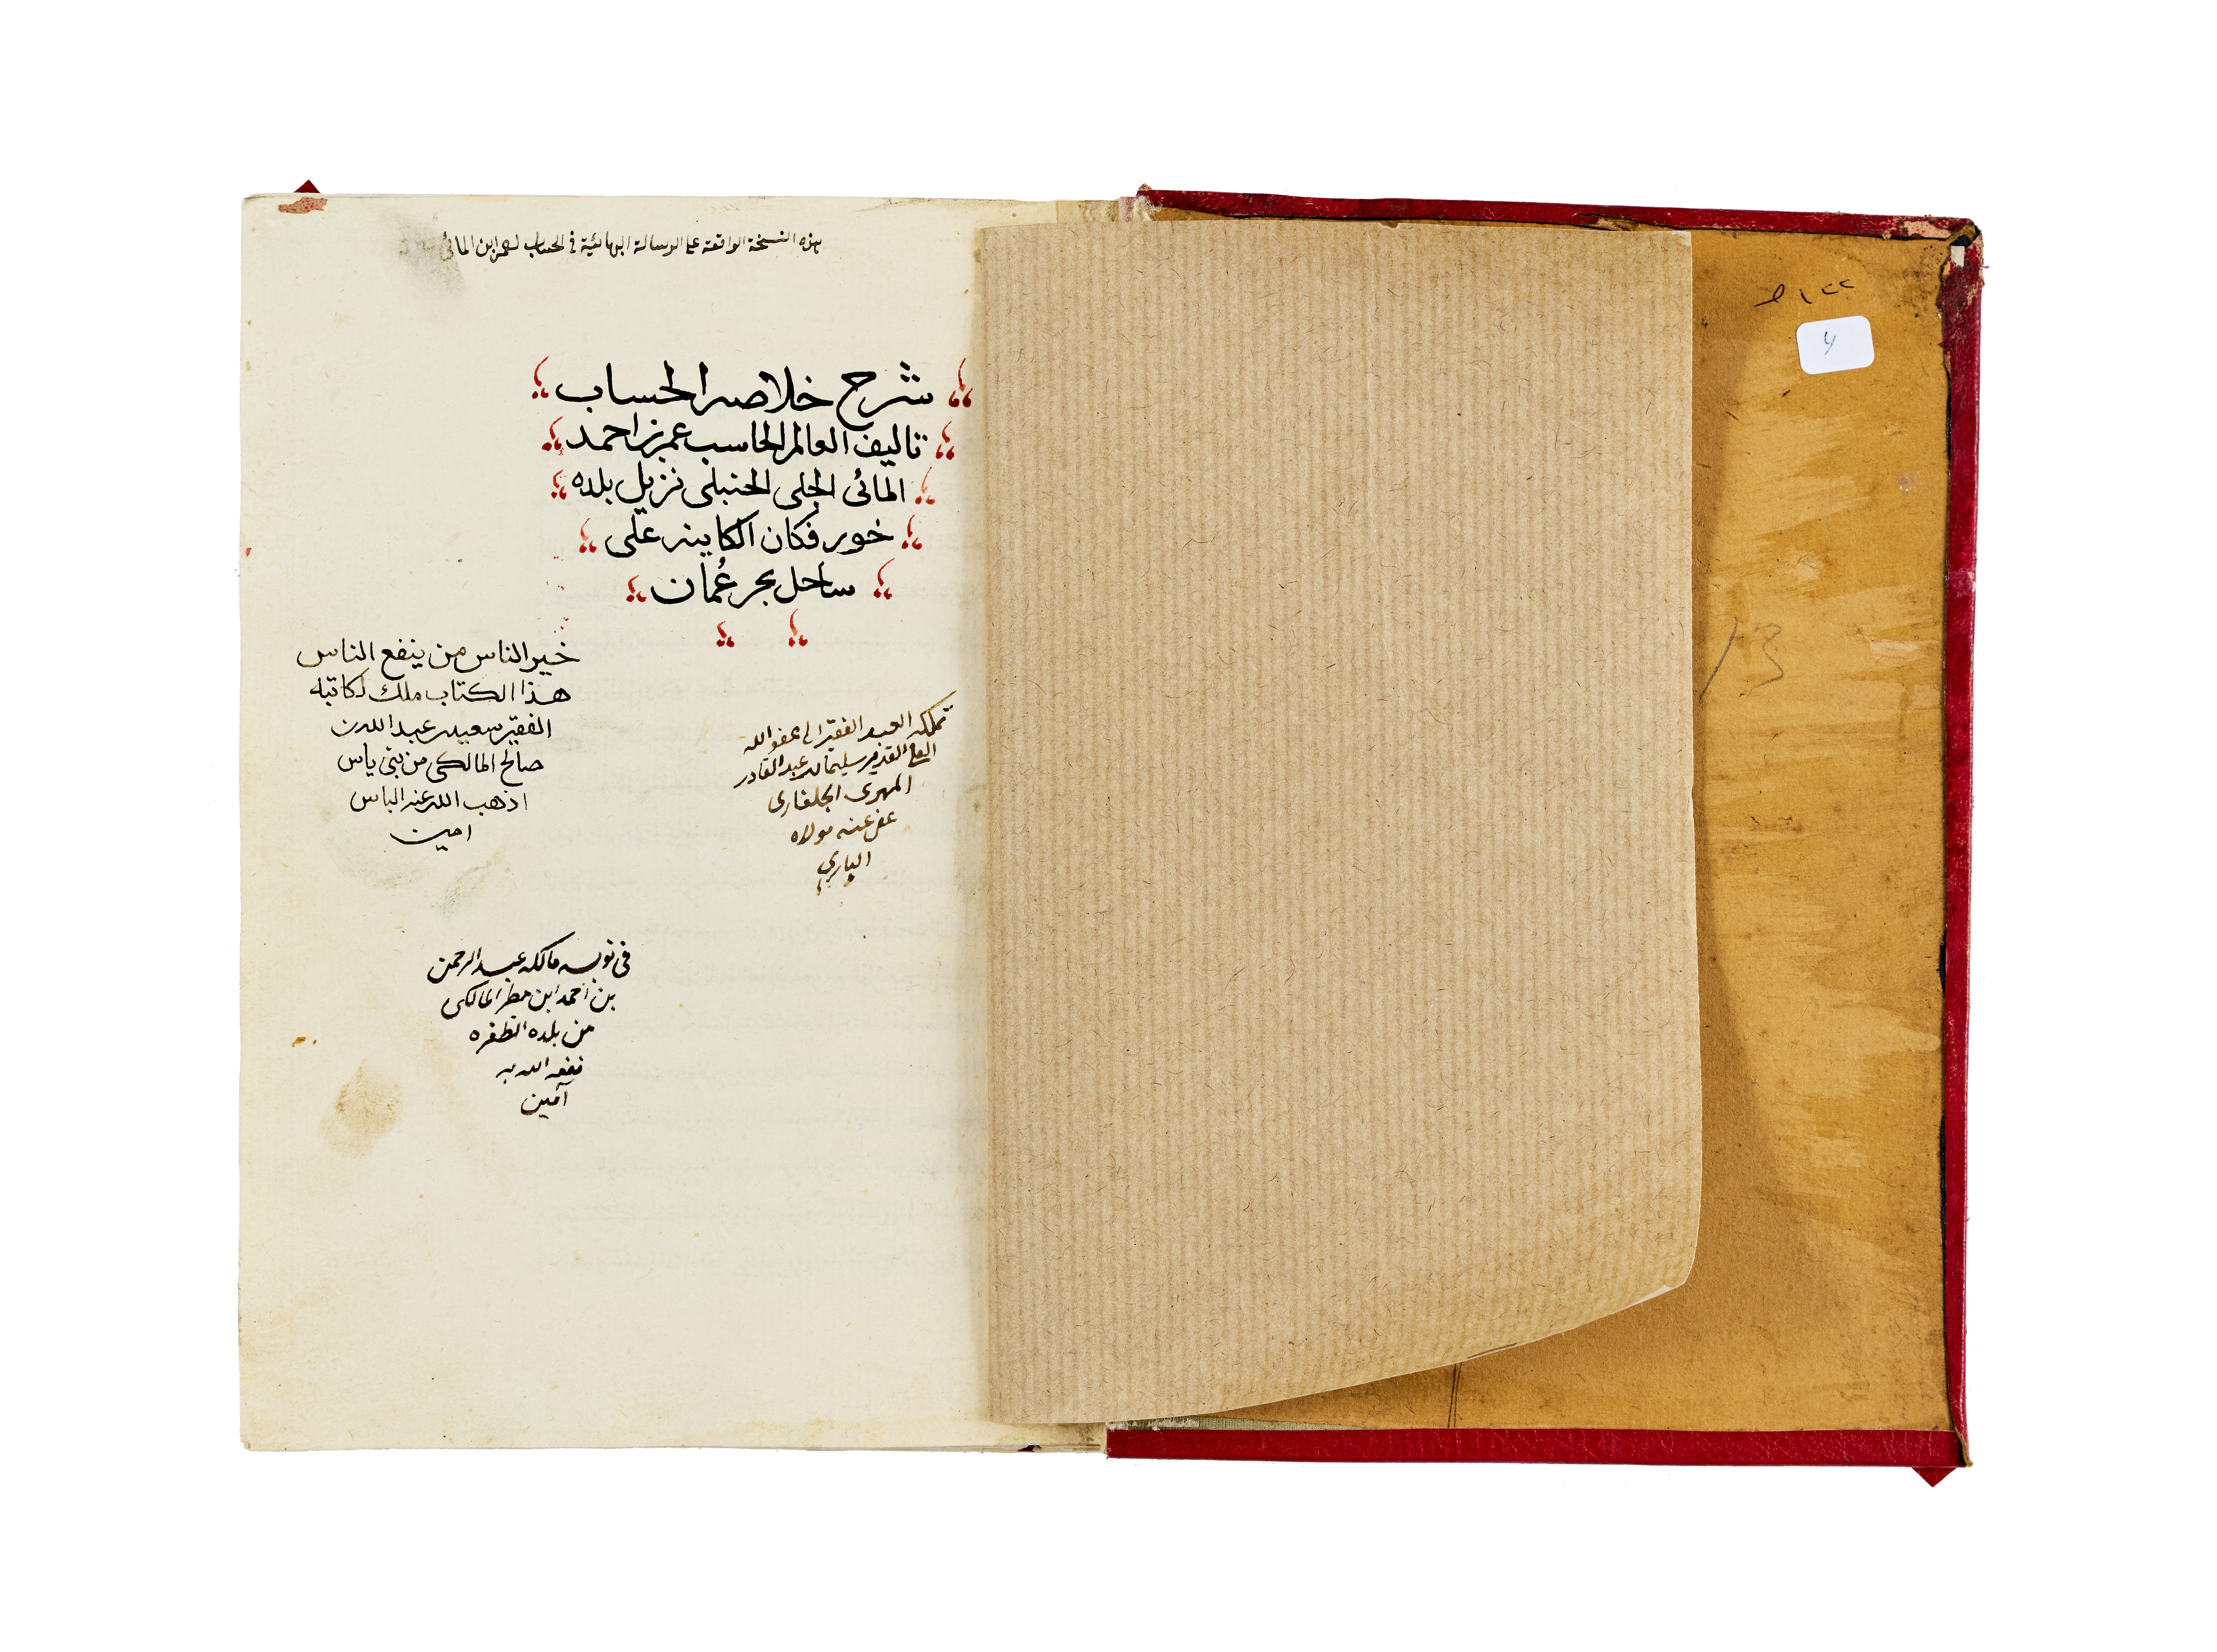 هذه النسخة الواقعة على الرسالة البهائية في الحساب لعمر ابن المائي
شرح خلاصه الحساب
تاليف العالم الحاسب عمر بن احمد
المائى الجلى الحنبلى نزيل بلده
خور فكان الكاينه على
ساحل بحر عُمان
خير الناس من ينفع الناس
هذا الكتاب ملك لكاتبه
الفقير سعيد بن عبد الله بن
صالح المالكى من بنى ياس
اذهب الله عنه الباس
امين
تملكه العبد الفقير الى عفو الله
العلي القدير سليمان بن عبد القادر
المهرى الجلفارى
عفى عنه مولاه
الباري
فى نوبه مالكه عبد الرحمن
بن احمد ابن مطر المالكى
من بلده الظفره
نفعه الله به
آمين
١٢٢
13